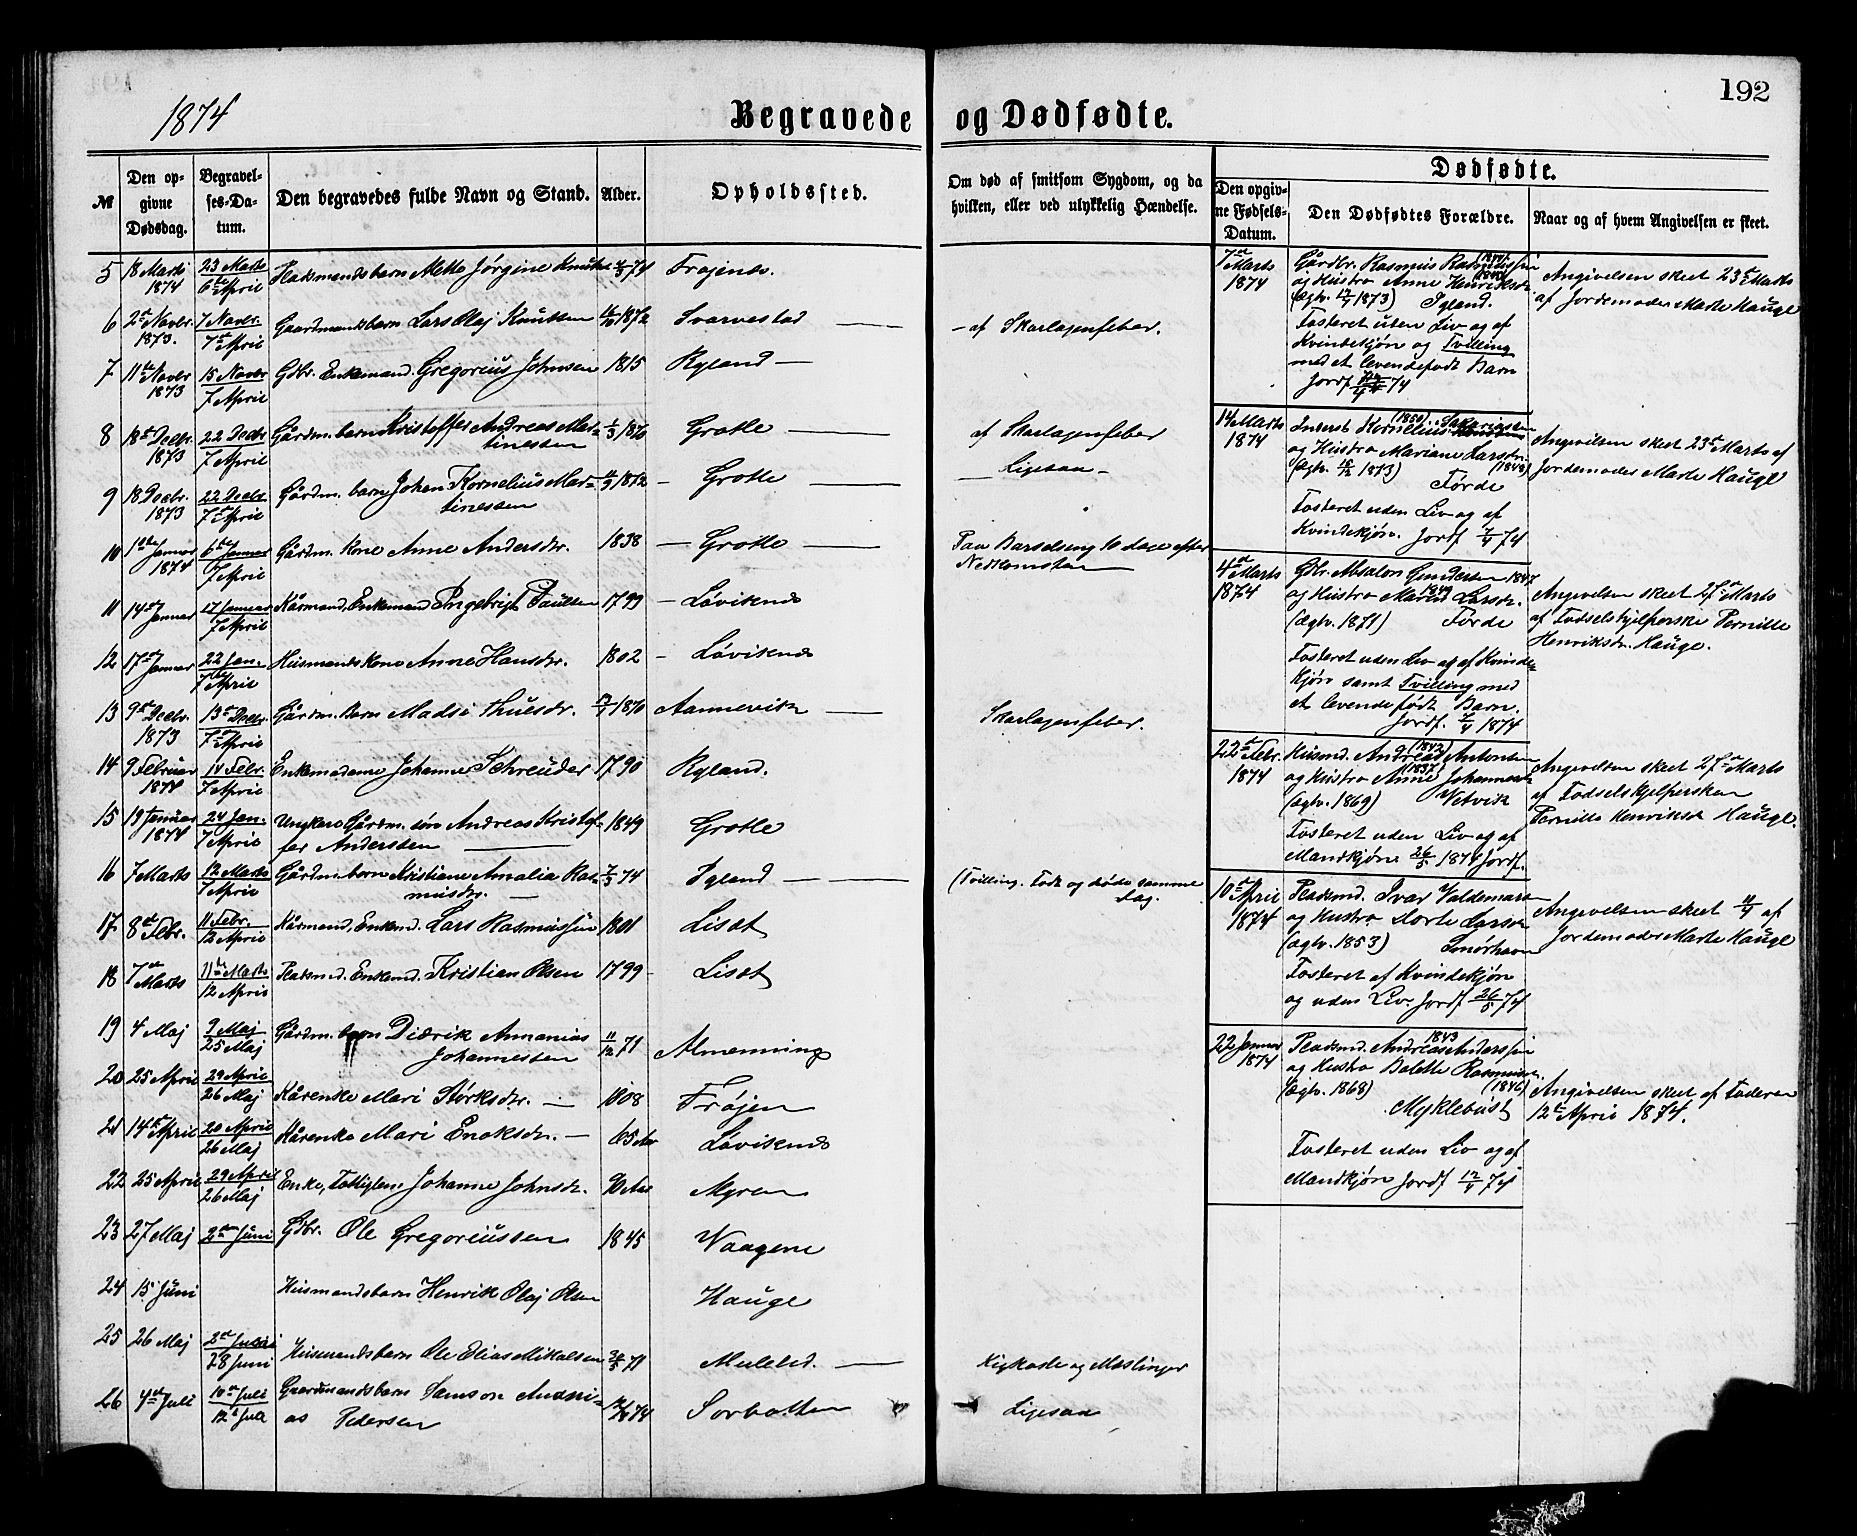 192
1874
Begravede og Dødfødte.
№
Den opgivne Dødsdag.
Begravelses-Datum.
Den begravedes fulde Navn og Stand.
Alder.
Opholdssted.
Om død af smitsom Sygdom, og da hvilken, eller ved ulykkelig Hændelse.
Dødfødte.
Den opgivne Fødsels-Datum.
Den Dødfødtes Forældre.
Naar og af hvem Angivelsen er skeet.
5 18 Marts 1874 23 Marts 6te April Pladsmandsbarn Mette Jørgine Knutsdr 74 Frøjenes.
6 2den Novbr. 1873. 7 Novbr. 7de April Gaardmandsbarn Lars Olaj Knutsen 1872 Svarvestad — – af Skarlagensfeber.
7 11te Novbr 1873 15 Novbr 7 April Gdbr. Enkemand. Gregorius Johnsen 1815 Rylands —
8 18de Decbr. 1873 22 Decbr 7 April Gårdm. barn Kristoffer Andreas Martinessen 1/3 1870 Grotle — af Skarlagensfeber
9 18 Decbr. 1873 22 Decbr 7de April Gårdm. barn Johan Kornelius Martinessen 1872 – Grotle — Ligesaa –
10 1ste Januar 1874 6te Januar 7 April Gårdm. kone Anne Andersdr. 1838 – Grotle — Paa Barselseng 10 dage efter Nedkomsten —
11 14de Januar 17 Januar 7 April Kårmand, Enkemand Ingebrigt Paulsen 1799 – Løvisenes
12 17de Januar 22 Jan. 7de April Husmands kone Anne Hansdr. 1802 – Løvisenes
13 9de Decbr. 1873 13de Decbr. 7de April Gårdm. Barn Madsi Thuesdr. 1870 Aannevik — Skarlagensfeber.
14 9 Februar 1874 14 Febr. 7 April Enkemadame Johanne Schreuder 1790 Rylands.
15 19 Januar 1874 24 Jan. 7 April Ungkarl Gårdm. søn Andreas Kristoffer Anderssen — 1849 Grotle
16 7 Marts 12 Marts 7 April Gårdm. barn Kristiane Amalia Rasmusdr. — 7/3 74 Igland — (Tvilling. Født og døde samme Dag.
17 8de Febr. 11 Febr. 12 April Kårmand, Enkemd. Lars Rasmussen 1801 Liset
18 7de Marts 11te Marts 12 April Pladsmd. Enkemd. Kristian Olsen 1799 Liset
19 4 Maj 9 Maj 25 Maj Gårdm. barn Didrik Annanias Johannessen 11/12 71 Almenning
20 25 April 29 April 26 Maj Kårenke Mari Størksdr. — 1808 Frøjen
21 14de April 20 April 26 Maj Kårenke Mari Enoksdr. – 65 Aar Løvisenes
22 25 April 29 April 26 Maj Enke, Fattiglem Johanne Johnsdr. 90 Aar Myren
23 27 Maj 2den Juni Gdbr. Ole Gregoriussen 1845 Vaagene
24 15 Juni Husmandsbarn Henrik Olaj Olsen Hauge
25 26 Maj 2den Juni 28 Juni Husmandsbarn Ole Elias Mikalsen 71 Mulelid. — Kighoste og Meslinger
26 4de Juli 10de Juli 12te Juli Gaardmandsbarn Samson Andreas Pedersen 74 Sørbotten Ligesaa
7de Marts 1874
Gårdbr. Rasmus Rasmussen
og Hustru Anne Henriksdr.
(Ægtv. 1873) Igland.
Fosteret uden Liv og af
Kvindekjøn og Tvilling
med et levendefødt Barn
Jordf. 74
Angivelsen skeet 23de Marts
af Jordemoder Marte Hauge
14 Marts 1874
Inderst Kornelius (1850) Sakariassen
og Hustru Mariane Larsdr.
(Ægtv. 1873) (1848)
Førde
Fosteret uden Liv og af
Kvindekjøn. Jordf 7/4 74
Angivelsen skeet 23de Marts af
Jordemoder Marte Hauge
4de Marts 1874
Gdbr. Absalon Gundersen 1847
og Hustru Maren Larsdr.
(Ægtv. 1871) Førde
Fosteret uden Liv og af Kvindekjøn samt Tvilling med
et levende født Barn.
Jordf. 7/4 1874
Angivelsen skeet 27de Marts
af Fødselshjelperske Pernille
Henriksdr. Hauge.
22de Febr. 1874
Husmd. Andreas (1842) Antonsen
og Hustru Anne (1837) Johannesdr
(Ægtv. 1869) Vetvik
Fosteret uden Liv og af
Mandkjøn 26/5 1874 Jordf.
Angivelsen skeet 27de Marts
af Fødselshjelpersken
Pernille Henriksdr Hauge.
10de April 1874
Pladsmd. Ivar Valdemars
og Hustru Dorte Larsdr
(Ægtv. 1853) Smørhavn
Fosteret af Kvindekjøn
og uden Liv. Jordf 26/5 74
Angivelsen skeet 11/4 af
Jordemoder Marte Hauge
22 Januar 1874
Pladsmd. Andreas 1843 Anderssen
og Hustru Bolette Rasmusdr.
(Ægtv. 1868) (1846)
Myklebust
Fosteret uden Liv og af
Mandkjøn Jordf 12/4 74
Angivelsen skeet af Faderen
12te April 1874.